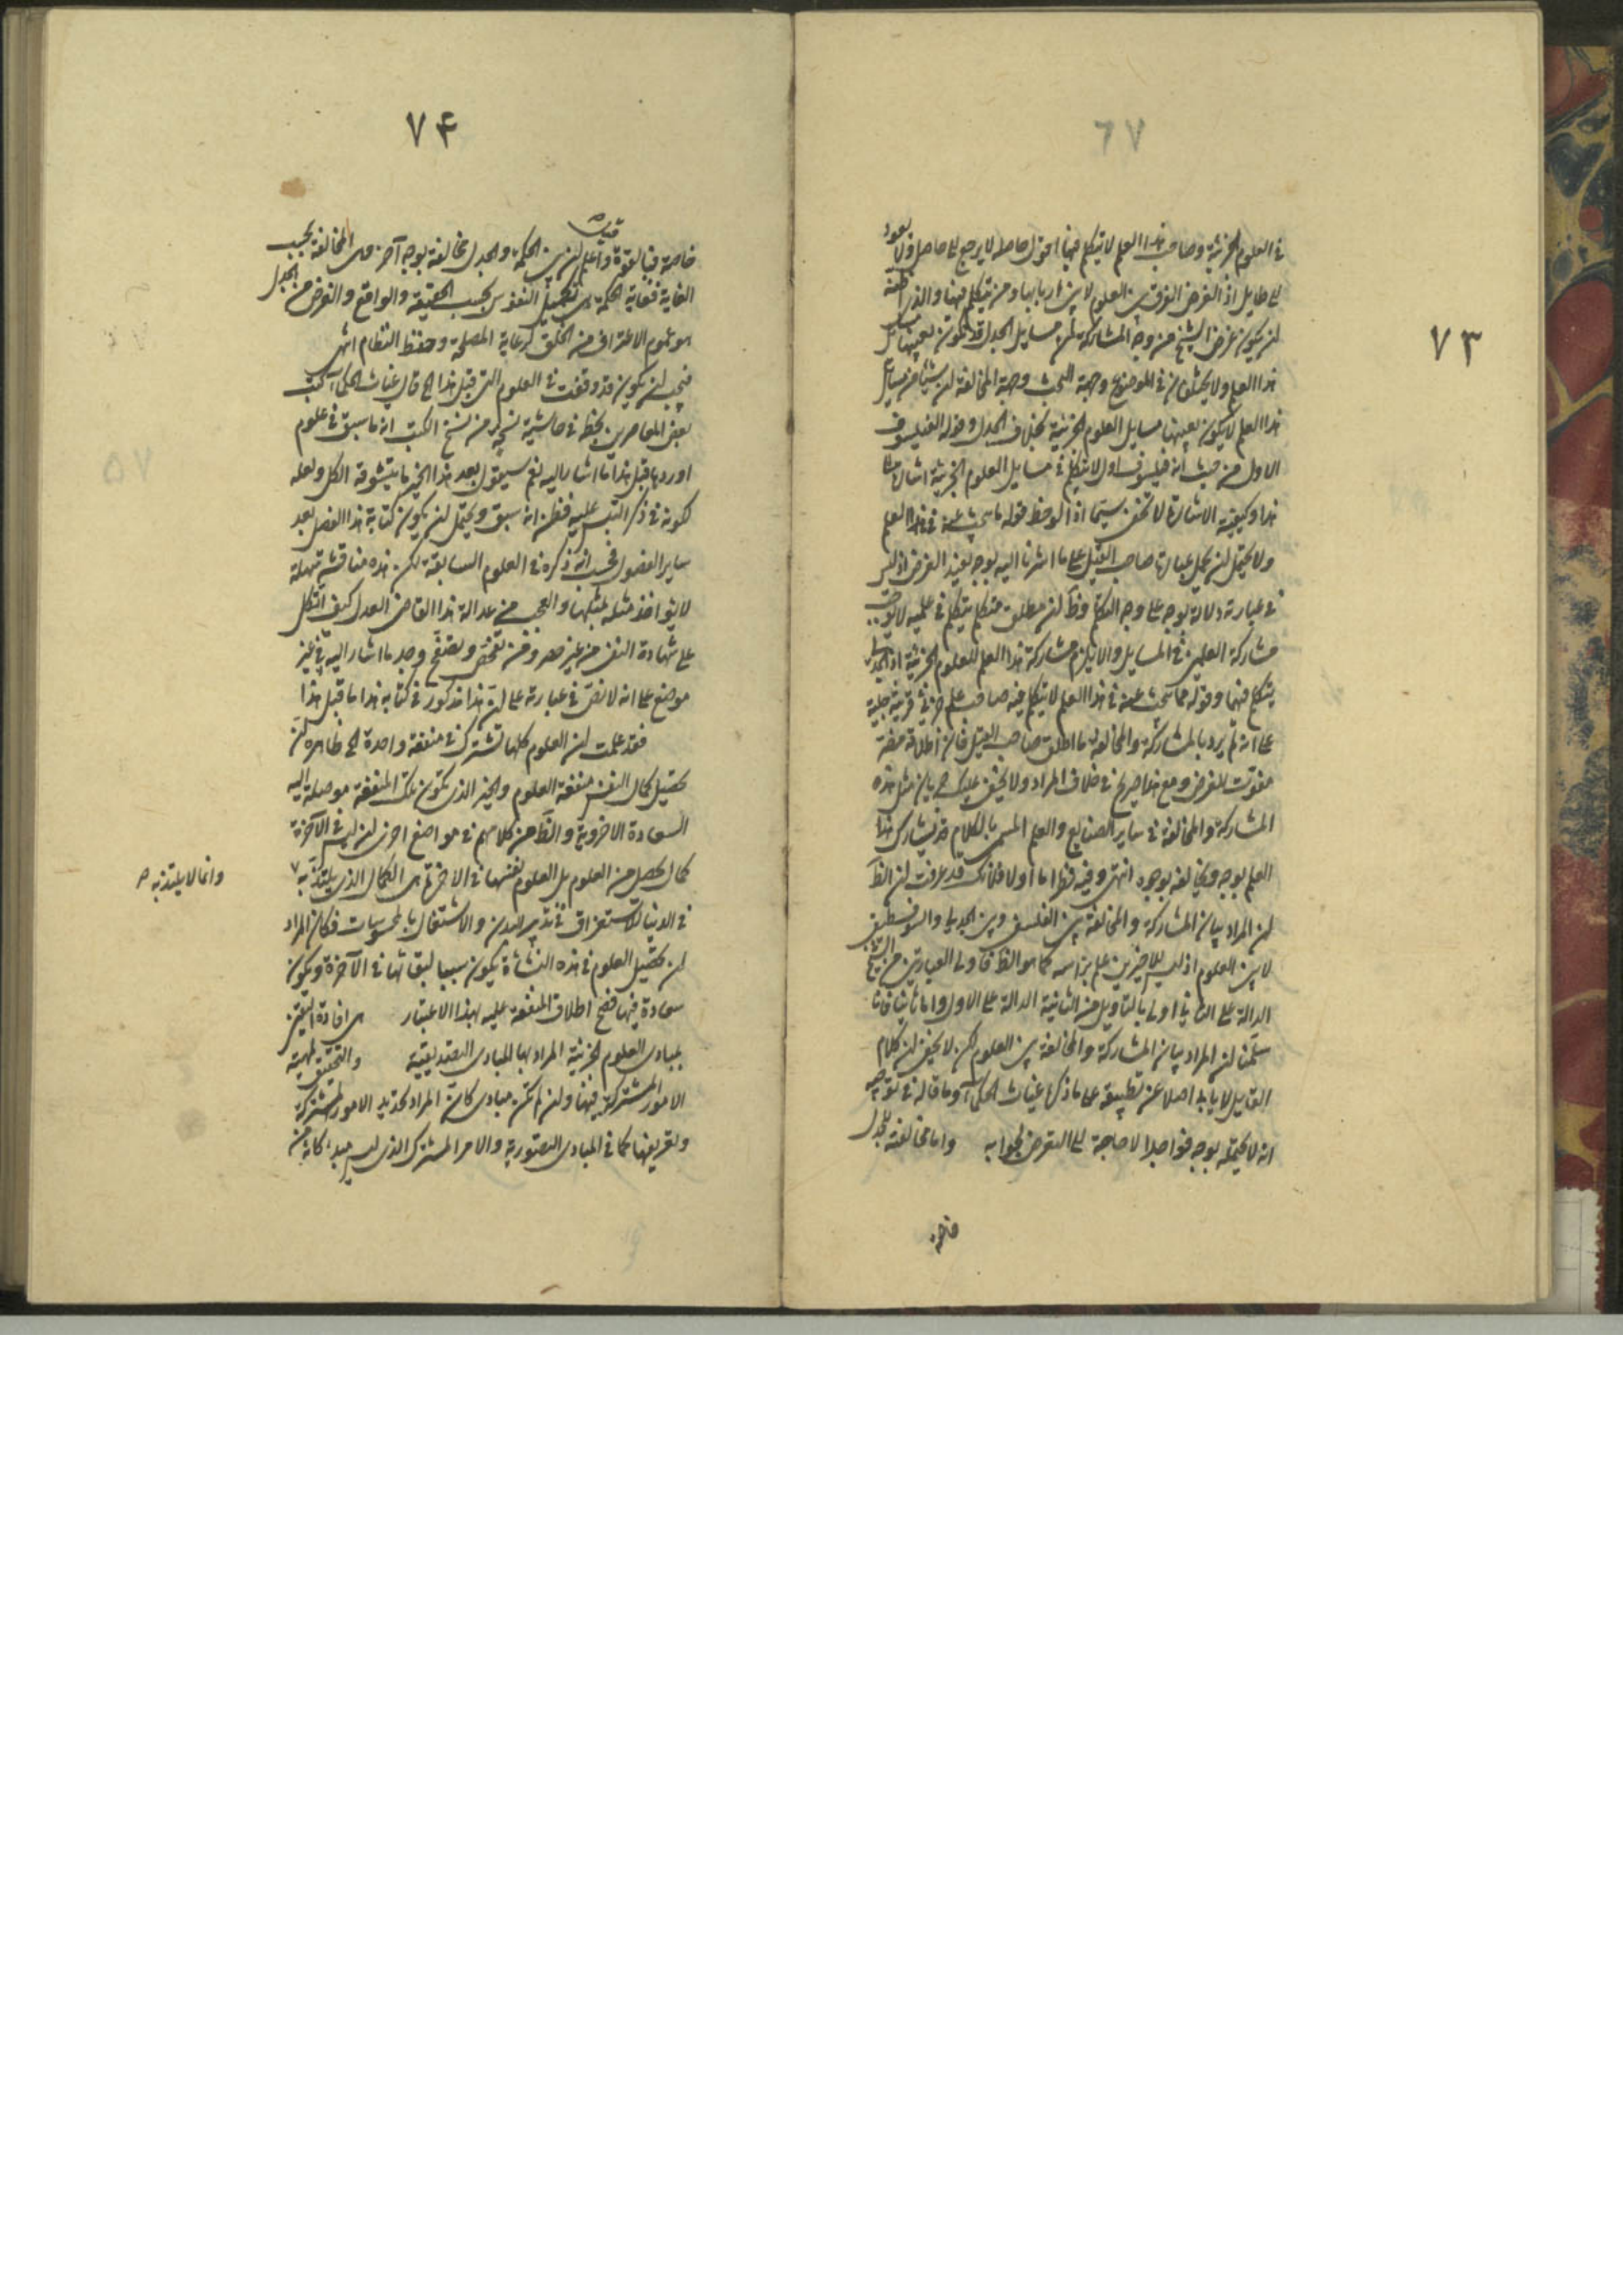 ٦٧
٧٣
في العلوم الجزئية وصاحب هذا العلم لا يتكلم فيها اقول حاصله لا يرجع الى حاصل ولا يعود
الى طايل اذ الغرض الفرق بين العلوم لا بين اربابها ومن يتكلم فيها والذي اظنه
لن يكون غرض الشيخ من وجه المشاركة لن مسايل الجدل قد تكون بعينها مسايل
هذا العلم ولا يختلفان في الموضوع وجهة البحث وجهة المخالفة لن شيئا من مسايل
هذا العلم لا يكون بعينها مسايل العلوم الجزئية بخلاف الجدل وقوله الفيلسوف
الاول من حيث انه فيلسوف اول لا يتكلم في مسايل العلوم الجزئية اشارة الى
هذا وكيفية الاشارة لا تخفى سيما اذا لوحظ قوله ما يبحث عنه في هذا العلم
ولا يحتمل لن يحمل عبارة صاحب القيل على ما اشرنا اليه بوجه يفيد الغرض اذ ليس
في عبارته دلالة بوجه على وجه التكلم وظ لن مطلق متكلم يتكلم في علمين لا يوجب
مشاركة العلمين في المسايل والا يلزم مشاركة هذا العلم للعلوم الجزئية اذ الجدلي
يتكلم فيها وقوله مما يبحث عنه في هذا العلم لا يتكلم فيه صاحب علم جزئي قرينة جلية
على انه لم يرد بالمشاركة والمخالفة ما اطلق صاحب القيل فان اطلاقه مضرة
مفوت للغرض ومع هذا صريح في خلاف المراد ولا يخفى عليك جريان مثل هذه
المشاركة والمخالفة في ساير الصنايع والعلم المسمى بالكلام فيشارك هذا
العلم بوجه ويخالفه بوجوه انتهى وفيه نظر اما اولا فلانك قد عرفت لن الظ
لن المراد بيان المشاركة والمخالفة بين الفلسفي وبين الجدلي والسوفسطيقي
لا بين العلوم اذ ليس للاخيرين علم براسه كما هو الظ فاولى العبارتين من الشيخ
الدالة على الثاني اولى بالتاويل من الثانية الدالة على الاول واما ثانيا فانا
سلمنا لن المراد بيان المشاركة والمخالفة بين العلوم لكن لا يخفى لن كلام
القايل لا يابى اصلا عن تطبيقه على ما ذكره غياث الحكماء وما قاله في توجيه
انه لا يحتمله بوجه فواحد لا حاجة الى التعرض لجوابه واما مخالفته للجدل
٧٤
خاصة فبالقوة واعلم لن بين الحكمة والجدل مخالفة بوجه آخر هى المخالفة بحسب
الغاية فغاية الحكمة هى تكميل النفوس بحسب الحقيقة والواقع والغرض من الجدل
هو عموم الاعتراف من الخلق كرعاية المصلحة وحفظ النظام انتهى
فيجب لن يكون قد وقفت في العلوم التى قبل هذا الخ قال غياث الحكماء كتب
بعض المعاصرين بخطه في حاشية نسخة من نسخ الكتاب انه ما سبق في علوم
اوردها قبل هذا ما اشار اليه نعم سيقول بعد هذا الخير ما يتشوقه الكل ولعله
لكونه في ذكر التبس عليه فظن انه سبق ويحتمل لن يكون كتابة هذا الفصل بعد
ساير الفصول فحسب انه ذكره في العلوم السابقة لكن هذه مناقشة سهلة
لا يؤاخذ مثله بمثلها والعجب من عدالة هذا القاضى العدل كيف اتكل
على شهادة النفى من غير حصر ومن تفحص وتصفح وجد ما اشار اليه في غير
موضع على انه لا نص في عبارته على لن هذا مذكور في كتابه هذا ما قبل هذا
فقد علمت لن العلوم كلها تشترك في منفعة واحدة الخ ظاهره لن
تحصيل كمال النفس منفعة العلوم والخير الذى تكون تلك المنفعة موصلة اليه
السعادة الاخروية والظ من كلامهم في مواضع اخرى لن ليس في الآخرة
كمال يحصل من العلوم بل العلوم نفسها في الاخرة هى الكمال الذى يلتذ به
وانما لا يلتذ به
في الدنيا للاستغراق في تدبير البدن والاشتغال بالمحسوسات فكان المراد
لن تحصيل العلوم في هذه النشاة يكون سببا لبقائها في الآخرة ويكون
سعادة فيها فصح اطلاق المنفعة عليه بهذا الاعتبار هى افادة اليقين
بمبادى العلوم الجزئية المراد بها المبادى التصديقية والتحقيق لمهية
الامور المشتركة فيها ولن لم تكن مبادى كان المراد تحديد الامور المشتركة
وتعريفها كما في المبادى التصورية والامر المشترك الذى ليس مبدءا كانه من